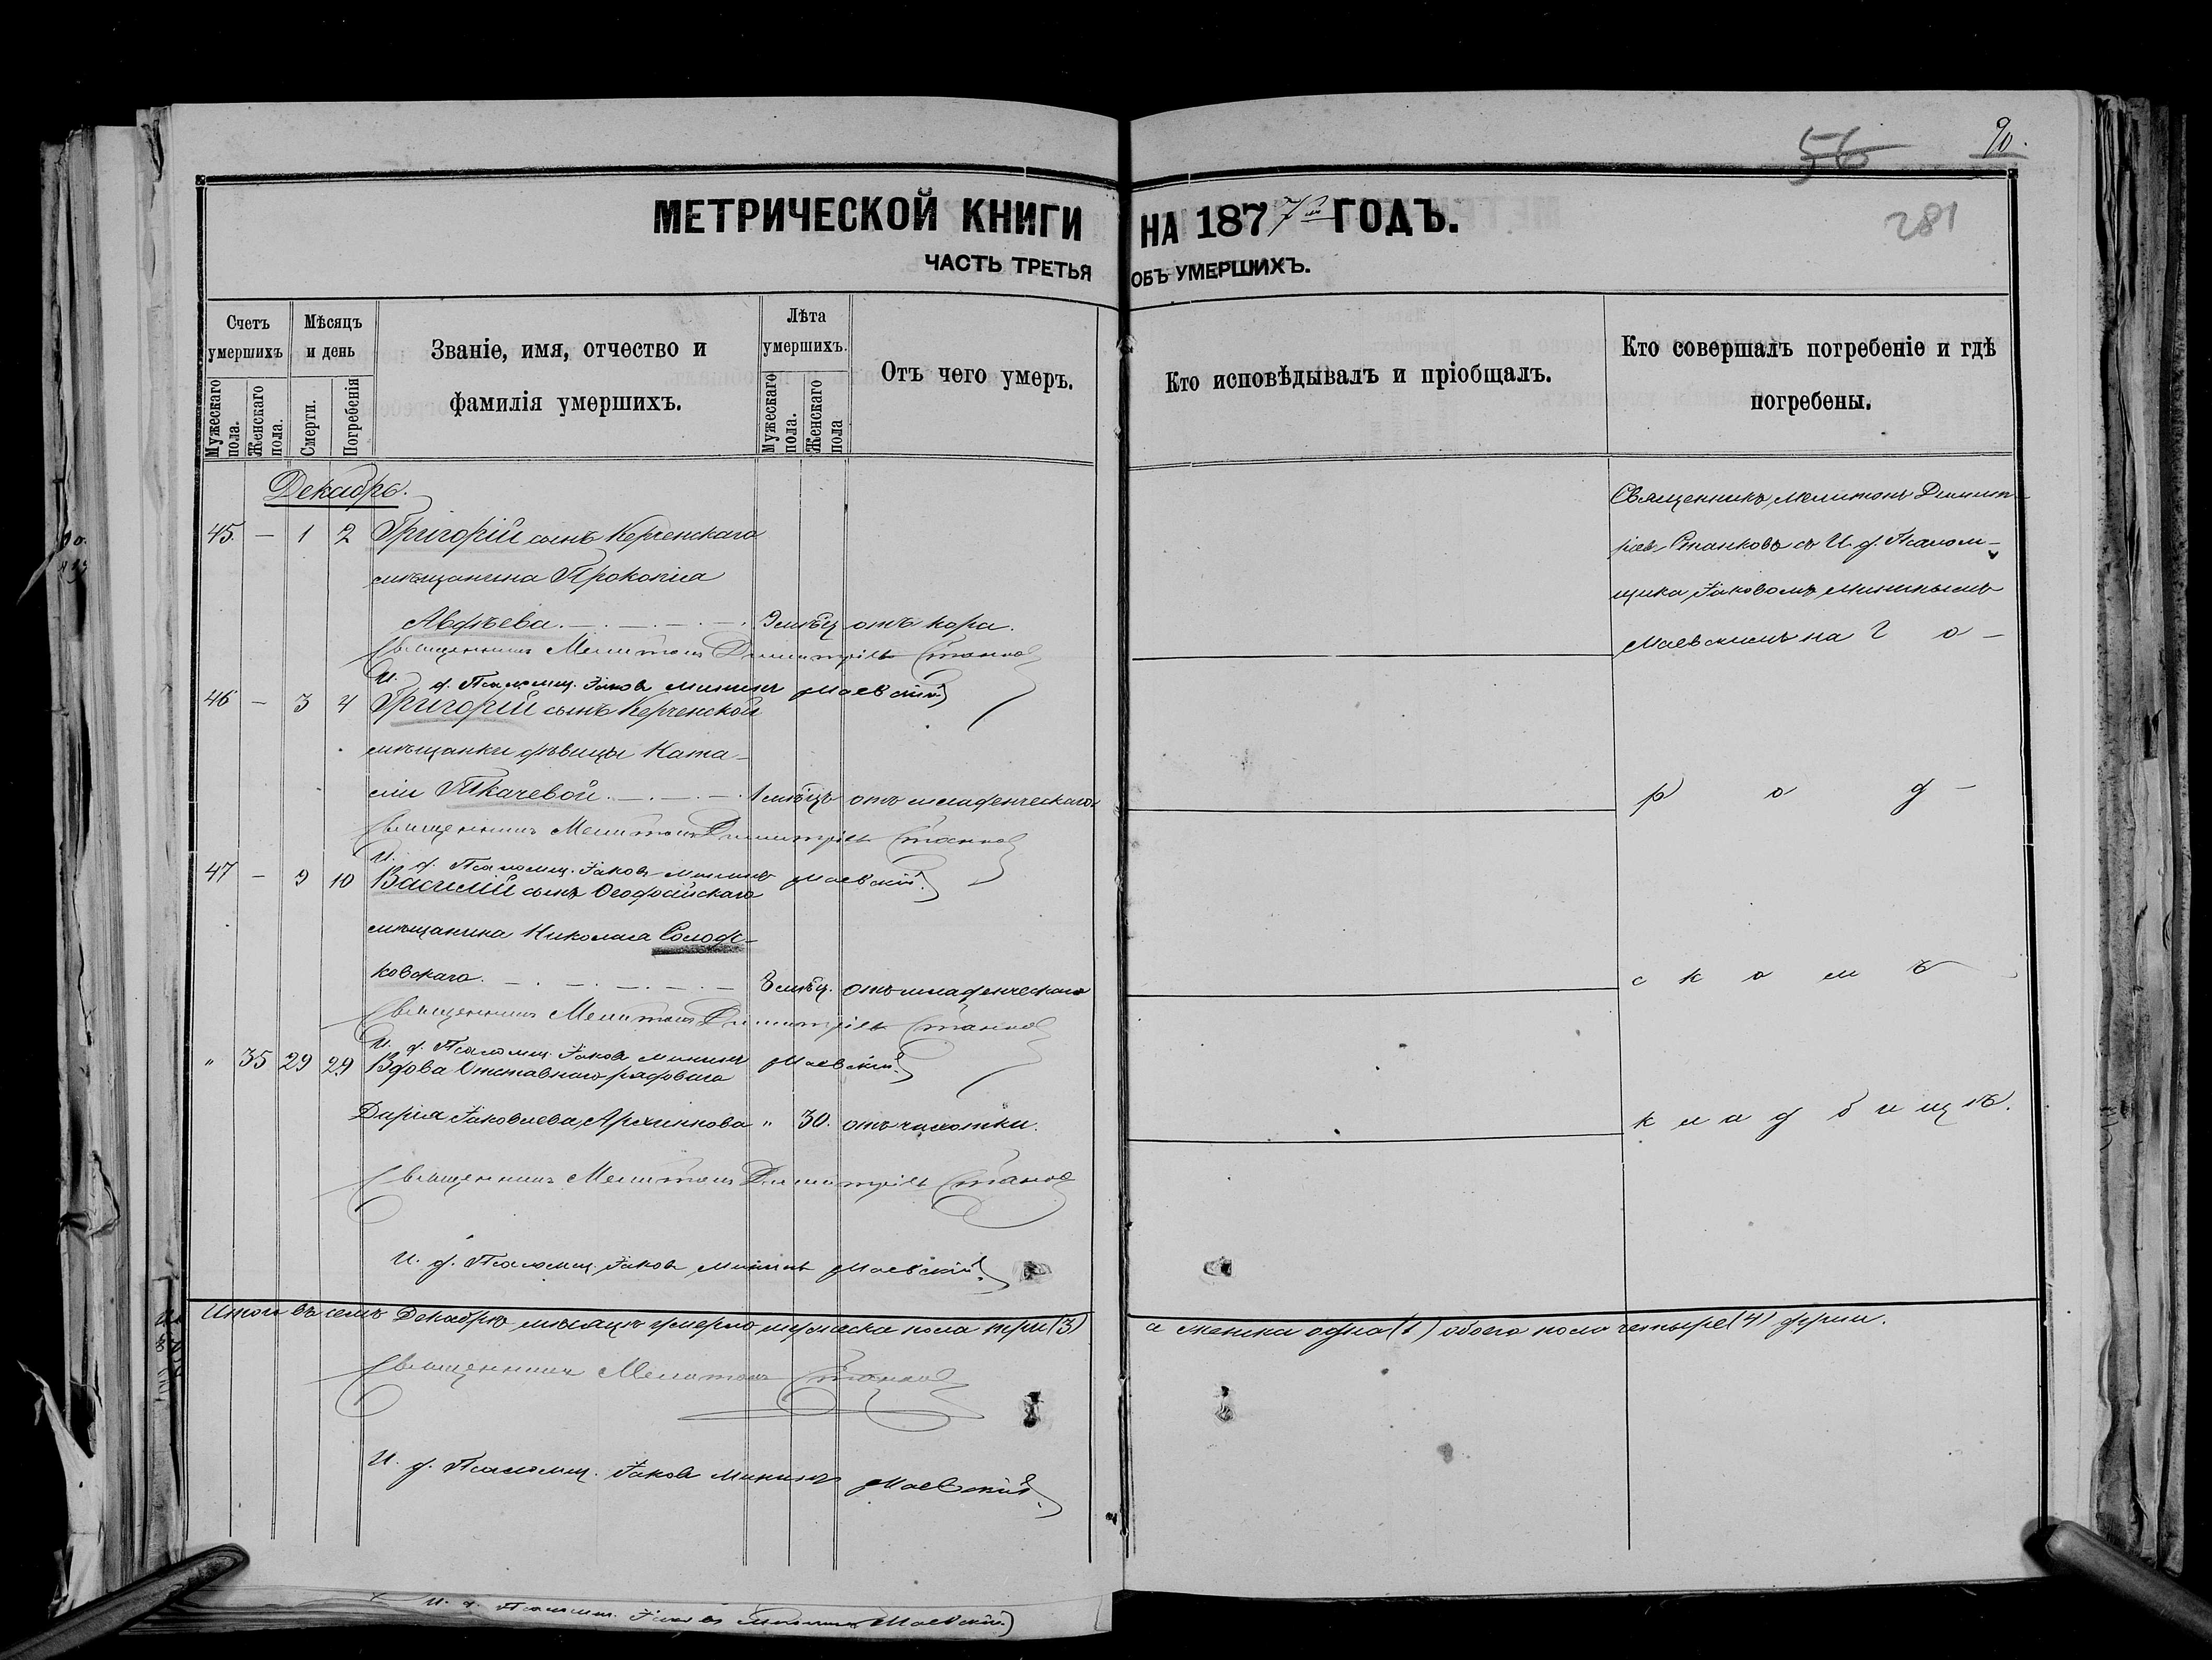 56 90.
МЕТРИЧЕСКОЙ КНИГИ НА 1877й ГОДЪ.
281
ЧАСТЬ ТРЕТЬЯ ОБЪ УМЕРШИХЪ.
Счетъ умершихъ
Мужескаго пола.
Женскаго пола.
Мѣсяцъ и день
Смерти.
Погребенія
Званіе, имя, отчество и фамилія умершихъ.
Лѣта умершихъ.
Мужескаго пола.
Женскаго пола
Отъ чего умеръ.
Кто исповѣдывалъ и пріобщалъ.
Кто совершалъ погребеніе и гдѣ погребены.
Декабрь.
45. — 1 2 Григорій сынъ Керченскаго
мѣщанина Прокопія
Авдѣева. — . — . — . 3 мѣсц. отъ кора.
Священникъ Мелитонъ Димитріевъ Станковъ
И. д. Псаломщ. Іаковъ Мининъ Маевскій
46 — 3 4 Григорій сынъ Керченской
мѣщанки дѣвицы Ната-
ліи Ткачевой. — . — . — . 1 мѣсцъ отъ младенческаго
Священникъ Мелитонъ Димитріевъ Станковъ
И. д. Псаломщ. Іаковъ Мининъ Маевскій.
47 — 9 10 Василій сынъ Ѳеодосійскаго
мѣщанина Николая Солод-
ковскаго. — . — . — . — . — 3 мѣсц. отъ младенческаго
Священникъ Мелитонъ Димитріевъ Станковъ
И. д. Псаломщ. Іаковъ Мининъ Маевскій.
" 35 29 29 Вдова Отставнаго рядоваго
Дарія Іаковлева Архипкова " 30. отъ чахотки.
Священникъ Мелитонъ Димитріевъ Станковъ
И. д. Псаломщ. Іаковъ Мининъ Маевскій.
Священникъ Мелитонъ Димит-
ріевъ Станковъ съ И. д. Псалом-
щика Іаковомъ Мининымъ
Маевскимъ на г о -
р о д -
с к о м ъ
к л а д б и щ ѣ.
Итого въ семъ Декабрѣ мѣсяцѣ умерло мужеска пола три (3) а женска одна (1) обоего пола четыре (4) души.
Священникъ Мелитонъ Станковъ
И. д. Псаломщ. Іаковъ Мининъ Маевскій.
И. д. Псаломщ. Іаковъ Мининъ Маевскій.